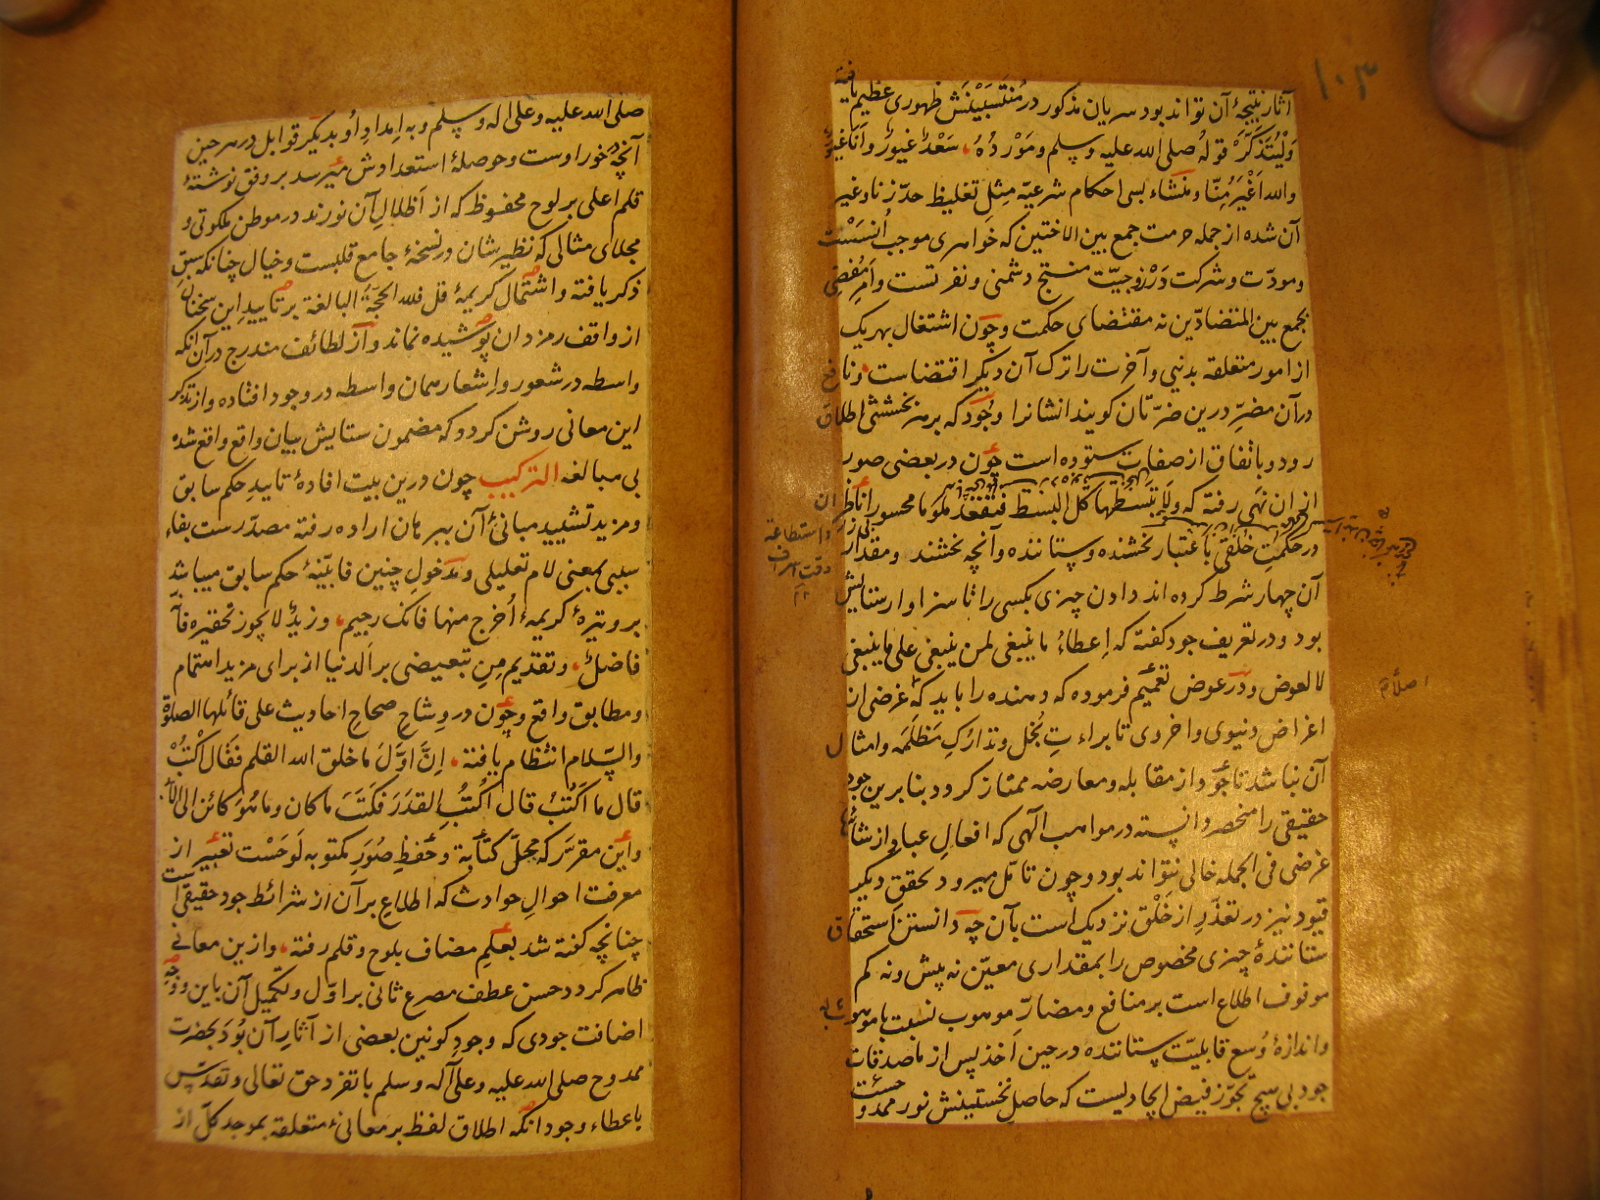 ۱۰۳
آثار نتیجهٔ آن تواند بود سریان مذکور در مُنتَسَبَیْنَش ظهوری عظیم یافته
وَلْیُتَذَکَّرْ قولهُ صلی الله علیه وسلم ومَوْرِدُهُ سَعْدٌ غیورٌ وأنا غیورٌ
والله اَغْیَرُ مِنّا ومنشاء بسی احکام شرعیّه مِثلِ تغلیظ حدّ زنا وغیر
آن شده از جمله حرمت جمع بین الاختین که خواهری موجب اُنسَسْت
ومودّت وشرکت دَرْ زوجیّت منتج دشمنی ونفرتست وامرِ مُفضِی
بجمع بین المتضادّین نه مقتضای حکمت وچون اشتغال بهریک
از امور متعلقه بدنیی وآخرت را ترک آن دیگر اقتضاست ونافع
درآن مضرِّ درین ضرّتان کویند انشانرا وجُود که بر هر بخششی اطلاق
رود وباتفاق از صفات ستوده است چون در بعضی صور
ازان نهی رفته که ولا تبسطها کل البسط فتقعد ملوما محسورا ناظران
در حکمتِ خُلقی باعتبار بخشنده وستاننده وآنچه بخشند ومقدار
آن چهار شرط کرده اند دادن چیزی بکسی را نا سزاوار ستایش
بود ودر تعریف جود کفته که اِعطاءُ ما ینبغی لمن ینبغی علی ما ینبغی
لا لعوض ودر عوض تعمیم فرموده که دهنده را باید که غرضی از
اغراض دنیوی واخروی تا براءتِ بُخل وتدارُکِ مَظلَمه وامثال
آن نباشد تا جود از مقابله ومعارضه ممتاز کردد بنابرین جود
حقیقی را منحصر دانسته در مواهب الٓهی که افعالِ عباد از شائبهٔ
غرضی فی الجمله خالی نتواند بود وچون تامّل میرود تحقق دیکر
قیود نیز در تعذّرِ از خَلْق نزدیک است بآن چه دانستن استحقاق
ستانندهٔ چیزی مخصوص را بمقداری معیّن نه پیش ونه کم
موقوف اطلاع است بر منافع ومضارّ موهوب نسبت با موهوب له
واندازهٔ وُسعِ قابلیّت ستاننده در حین اَخذ پس از ماصدقات
جود بی هیچ تجوّز فیض ایجادیست که حاصلِ نخستینش نور ممدوحست
اصلاً م
صلی الله علیه وعلی اله وسلم وبه اِمدادِ اُو بدیکر قوابل در هر حین
آنچه خورا وست وحوصلهٔ استعدادش میرسد بر وفق نوشتهٔ
قلم اعلی بر لوح محفوظ که از اَظلالِ آن نورند در موطن ملکوتی و
مجلای مثالی که نظیرِشان در نسخهٔ جامع قلبست وخیال چنانکه سبق
ذکر یافته واشتمال کریمهٔ قل فلله الحجّة البالغة بر تاییدِ این سخنان
از واقف رمزدان پوشیده نماند واز لطائف مندرج درآن آنکه
واسطه در شعور واِشعار همان واسطه در وجود افتاده واز تذکر
این معانی روشن کردد که مضمون ستایش بیان واقع واقع شده
بی مبالغه الترکیب چون درین بیت افادهٔ تاییدِ حکم سابق
ومزید تشیید مبانیٔ آن ببرهان اراده رفته مصدّرست بفاء
سببی بمعنی لام تعلیلی ومَدخولِ چنین فا بَیّنهٔ حکم سابق میباشد
بر وتیرهٔ کریمهٔ اُخرج منها فانک رجیم، وزیدٌ لا یجوز تحقیره فانّه
فاضلٌ، وتقدیم مِنِ تبعیضی بر الدنیا از برای مزید اهتمام
ومطابق واقع وچون در وِشاحِ صحاحِ احادیث علی قائلها الصلوة
والسّلام انتظام یافته، اِنَّ اوَّلَ ما خلق الله القلم فقال اُکتُبْ
قال ما اَکتُبُ قال اُکتُبِ القَدَرَ فکَتَبَ ما کان وما هُو کائن الی الابد
واین مقرّر که مجلّ کتابة وحفظِ صُوَرِ مکتوبه لَوحَسْت تعبیر از
معرفت احوالِ حوادث که اطلاعِ برآن از شرائط جود حقیقی است
چنانچه کفته شد بعِلمِ مضاف بلوح وقلم رفته، وازین معانے
ظاهر کردد حسن عطف مصرع ثانی بر اوّل وتکمیل آن باین ووجهِ
اضافت جودی که وجودِ کونین بعضی از آثارِ آن بُوَد بحضرت
ممدوح صلی الله علیه وعلی آله وسلم با تفرد حق تعالی وتقدّس
باعطاء وجود آنکه اطلاق لفظ بر معانیٔ متعلقه بموجد کل از